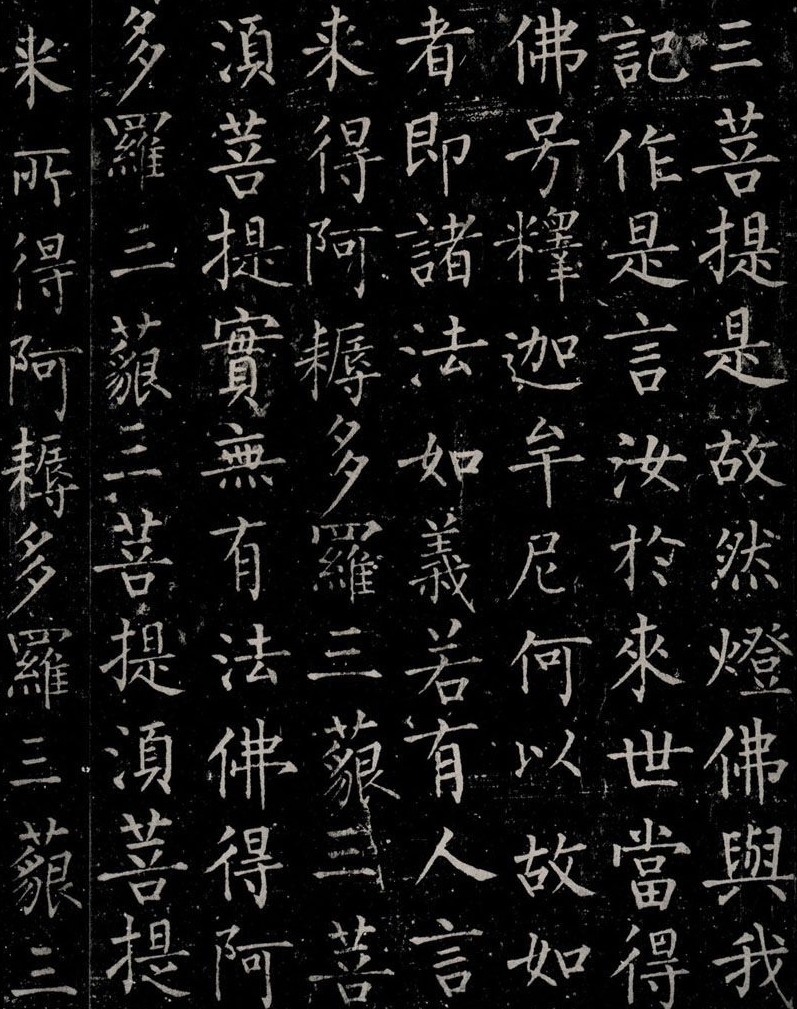 三菩提是故然燈佛與我
記作是言汝於來世當得
佛号釋迦牟尼何以故如
者即諸法如義若有人言
来得阿耨多羅三藐三菩
湏菩提實無有法佛得阿
多羅三藐三菩提湏菩提
来所得阿耨多羅三藐三